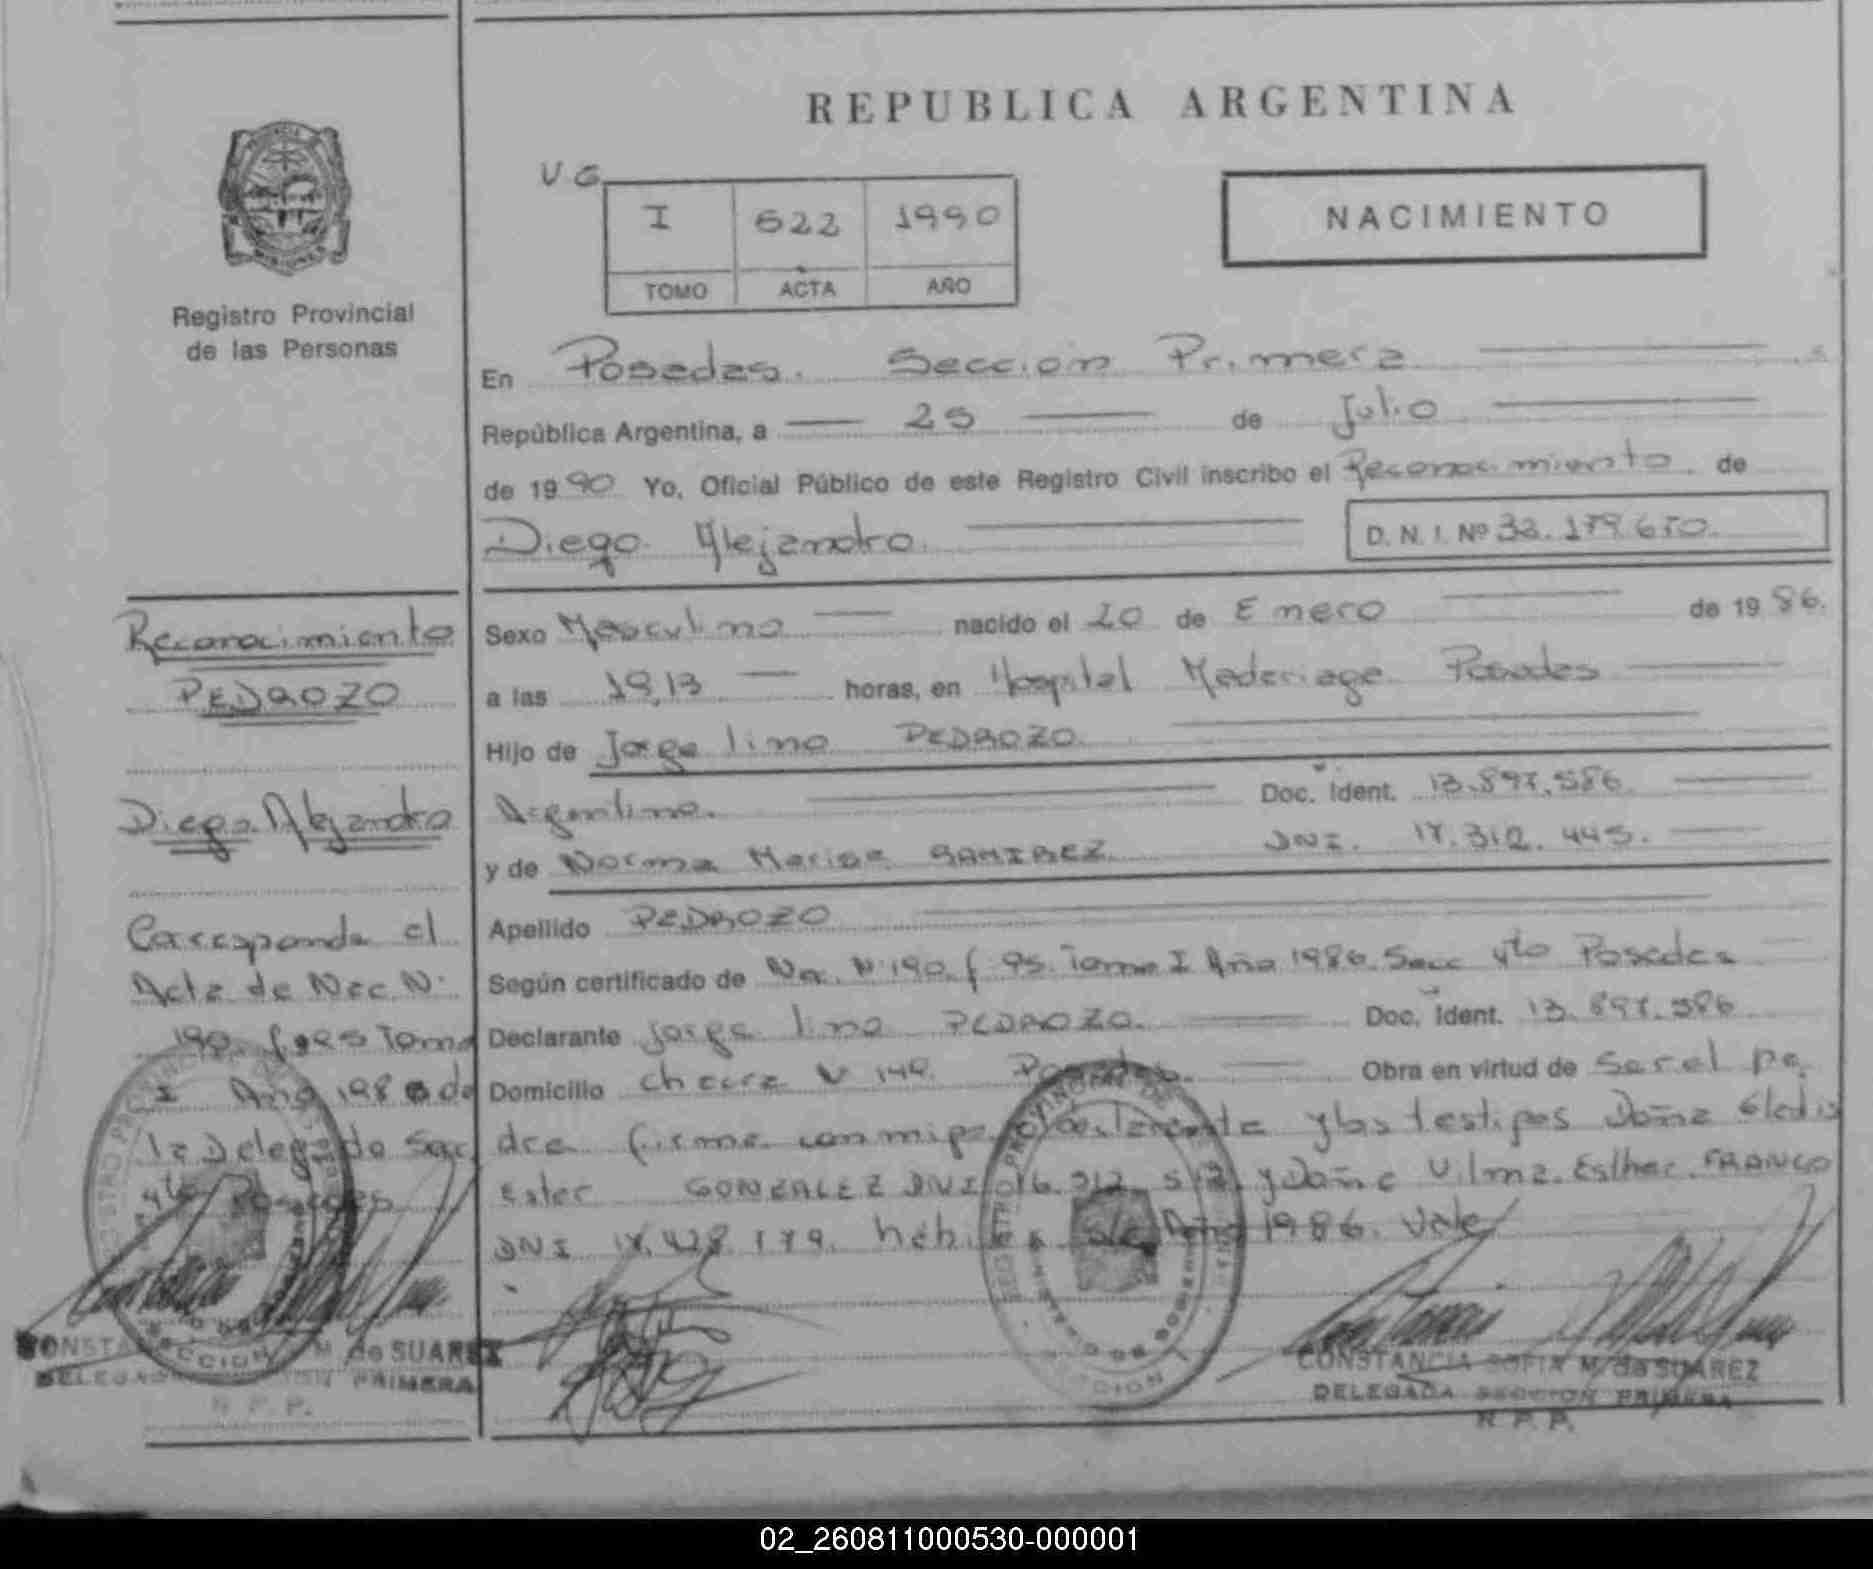 REPUBLICA ARGENTINA
V G
I 622 1990
TOMO ACTA AÑO
NACIMIENTO
Registro Provincial
de las Personas
En Posadas. Sección Primera
República Argentina, a 25 de Julio
de 1990 Yo, Oficial Público de este Registro Civil inscribo el Reconocimiento de
Diego Alejandro. D. N. I. Nº 32.179.650.
Sexo Masculino nacido el 20 de Enero de 1986.
a las 19,13 horas, en Hospital Madariaga Posadas
Hijo de Jorge lino PEDROZO
Argentino. Doc. Ident. 13.897.586.
DNI. 17.312.445.
y de Norma RAMIREZ
Apellido PEDROZO
Según certificado de Nac. Nº 190. f 95. Tomo I Año 1986. Secc 4to Posadas
Declarante Jorge lino PEDROZO. Doc. Ident. 13.897.586
Domicilio Nº 149. Posadas. Obra en virtud de ser el pa
dre firma conmigo declarante y los testigos Doña Gledis
Ester GONZALEZ DNI 16. y Doña Vilma Esther FRANCO
DNI 17.428.179. Año 1986. Vale
Reconocimiento
PEDROZO
Diego Alejandro
Corresponde al
Acta de Nac. N.
190. f 95 Tomo
I Año 1986 de
la Delegada Sec
4to Posadas
CONSTANCIA SOFIA M. de SUAREZ
DELEGADA SECCION PRIMERA
R. P. P.
CONSTANCIA SOFIA M. de SUAREZ
DELEGADA SECCION PRIMERA
R. P. P.
02_260811000530-000001